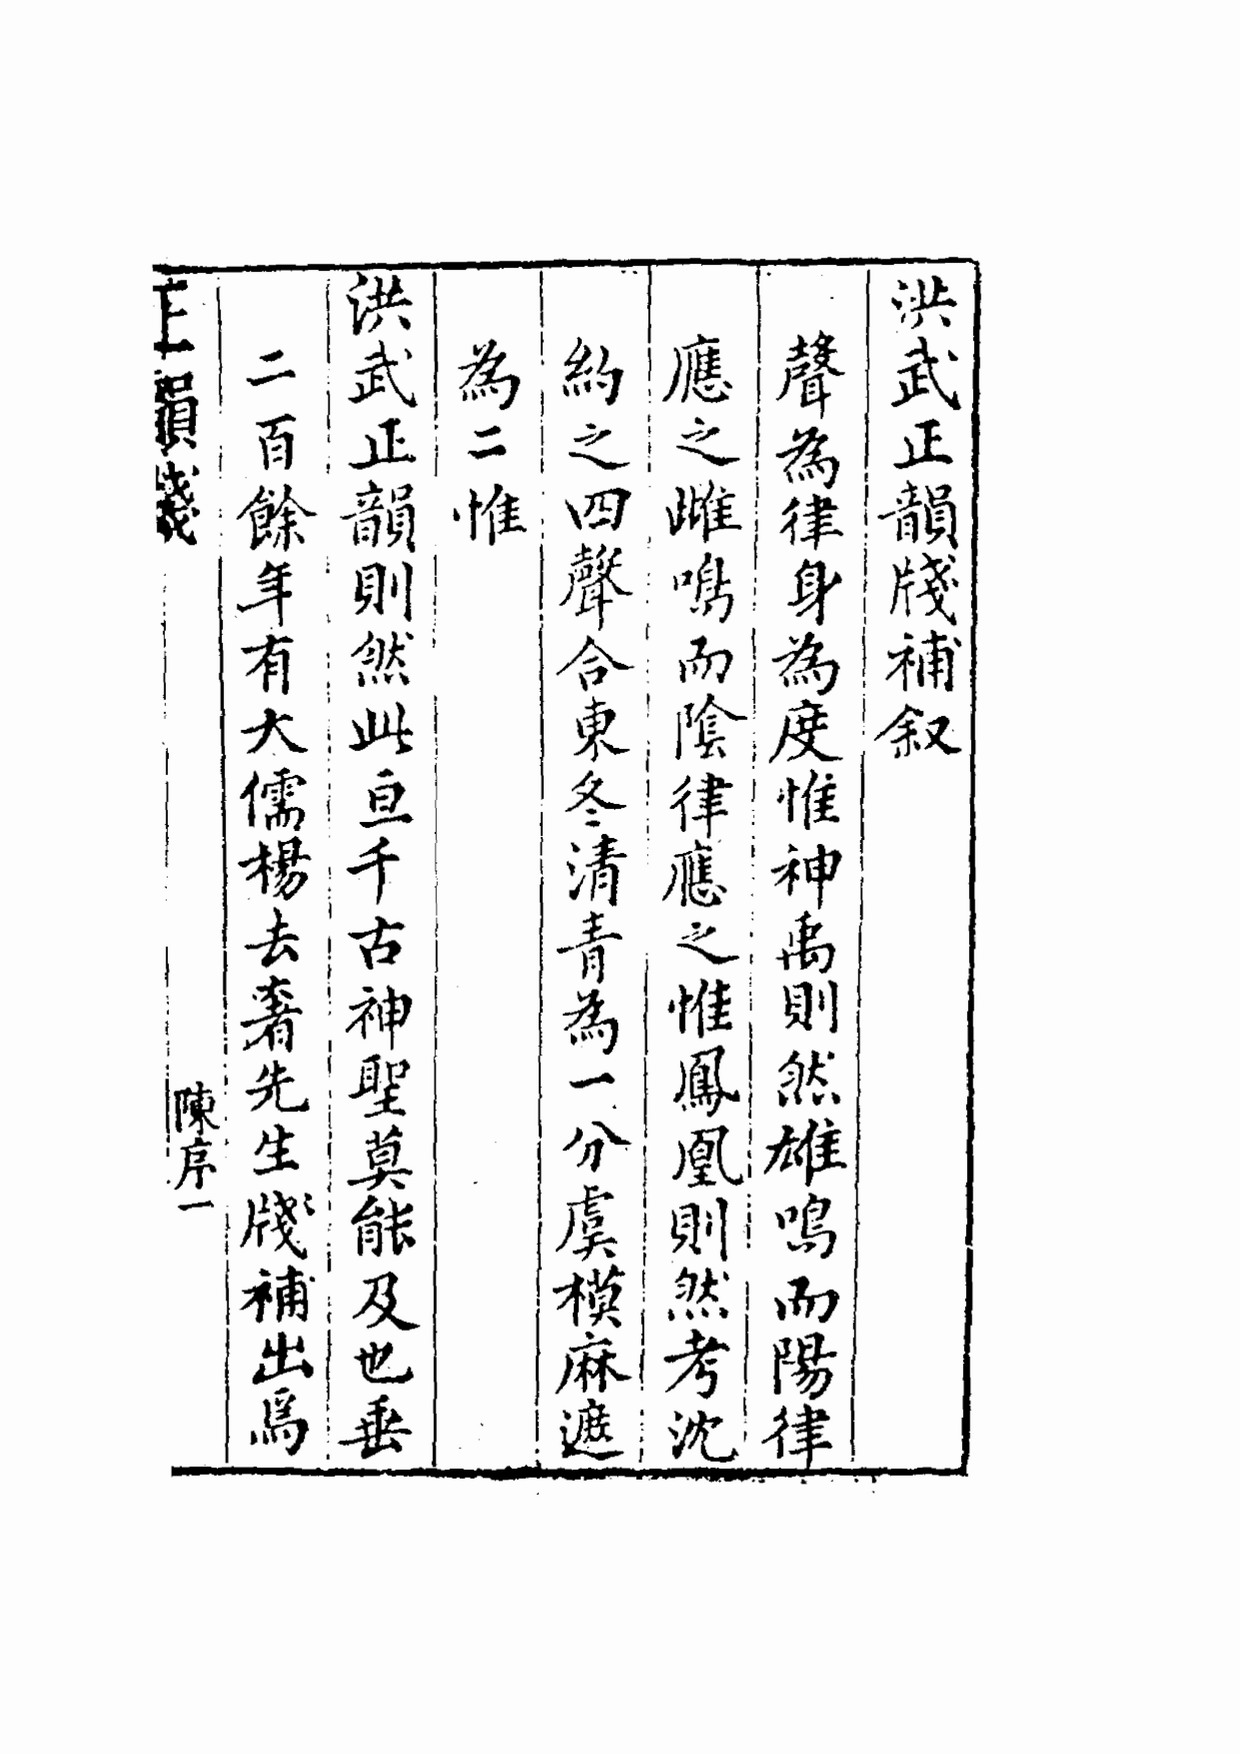 洪武正韻牋補叙
聲為律身為度惟神禹則然雄鳴而陽律
應之雌鳴而陰律應之惟鳳凰則然考沈
約之四聲合東冬清青為一分虞模麻遮
為二惟
洪武正韻則然此亘千古神聖莫能及也垂
二百餘年有大儒楊去奢先生牋補出焉
正韻牋
陳序一